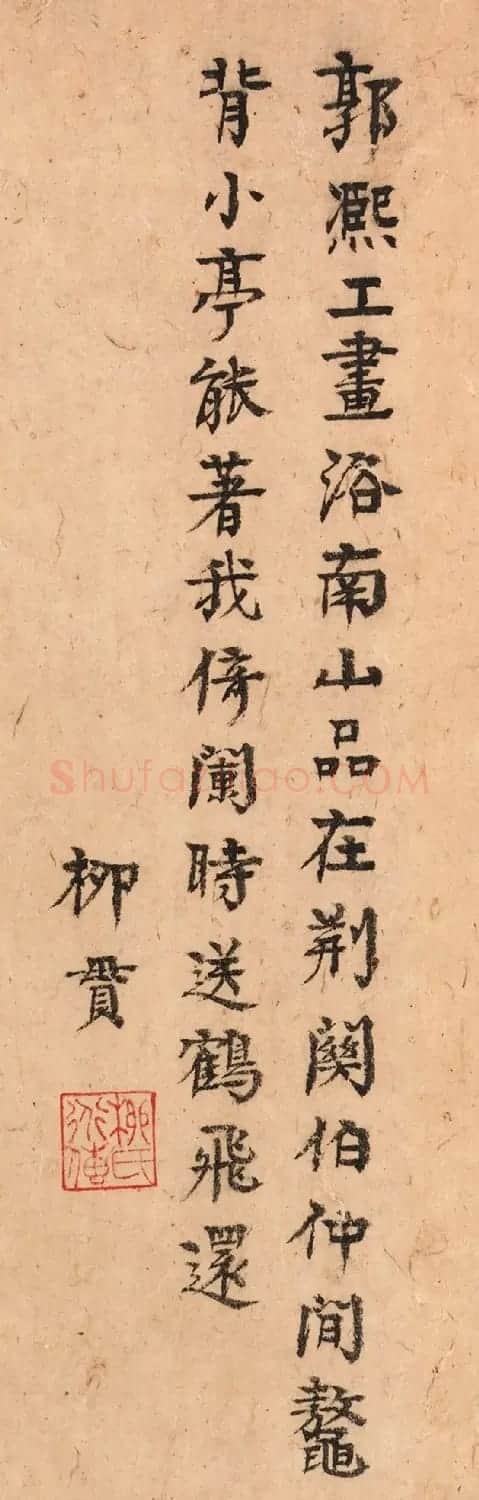 郭凞工畫浴南山品在荆闗伯仲間鼇
背小亭能著我倚闌時送鶴飛還
柳貫
柳氏
道傳